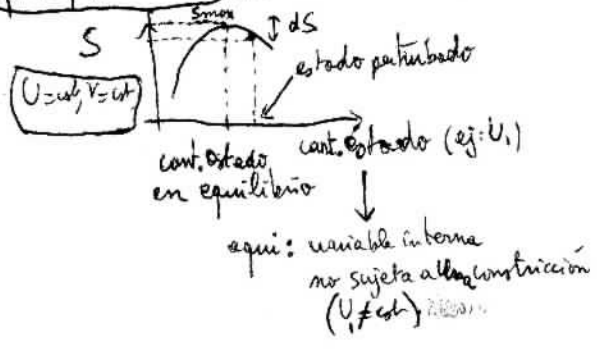 Smax
S
dS
estado perturbado
U=cst, V=cst
cant. estado
en equilibrio
cant. estado (ej: U₁)
aquí: variable interna
no sujeta a una constricción
(U₁≠cst)